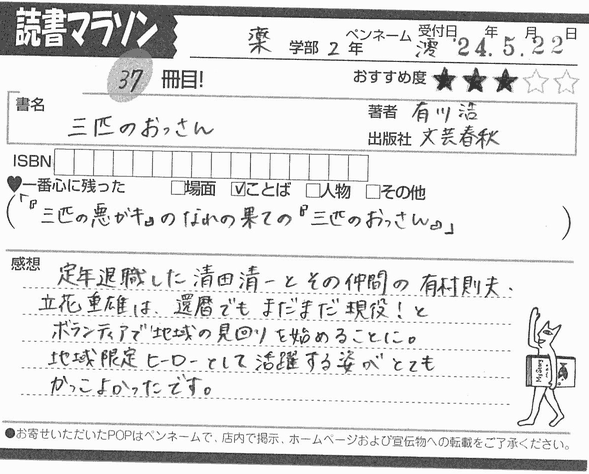 読書マラソン
薬 学部 2 年 ペンネーム 澪 受付日 '24年5.月22日
37 冊目! おすすめ度 ★★★☆☆
書名 三匹のおっさん
著者 有川浩
出版社 文芸春秋
ISBN
♥一番心に残った □場面 ☑ことば □人物 □その他
(「『三匹の悪ガキ』のなれの果ての『三匹のおっさん』」)
感想
定年退職した清田清一とその仲間の有村則夫、
立花重雄は、還暦でもまだまだ現役!と
ボランティアで地域の見回りを始めることに。
地域限定ヒーローとして活躍する姿がとても
かっこよかったです。
●お寄せいただいたPOPはペンネームで、店内で掲示、ホームページおよび宣伝物への転載をご了承ください。